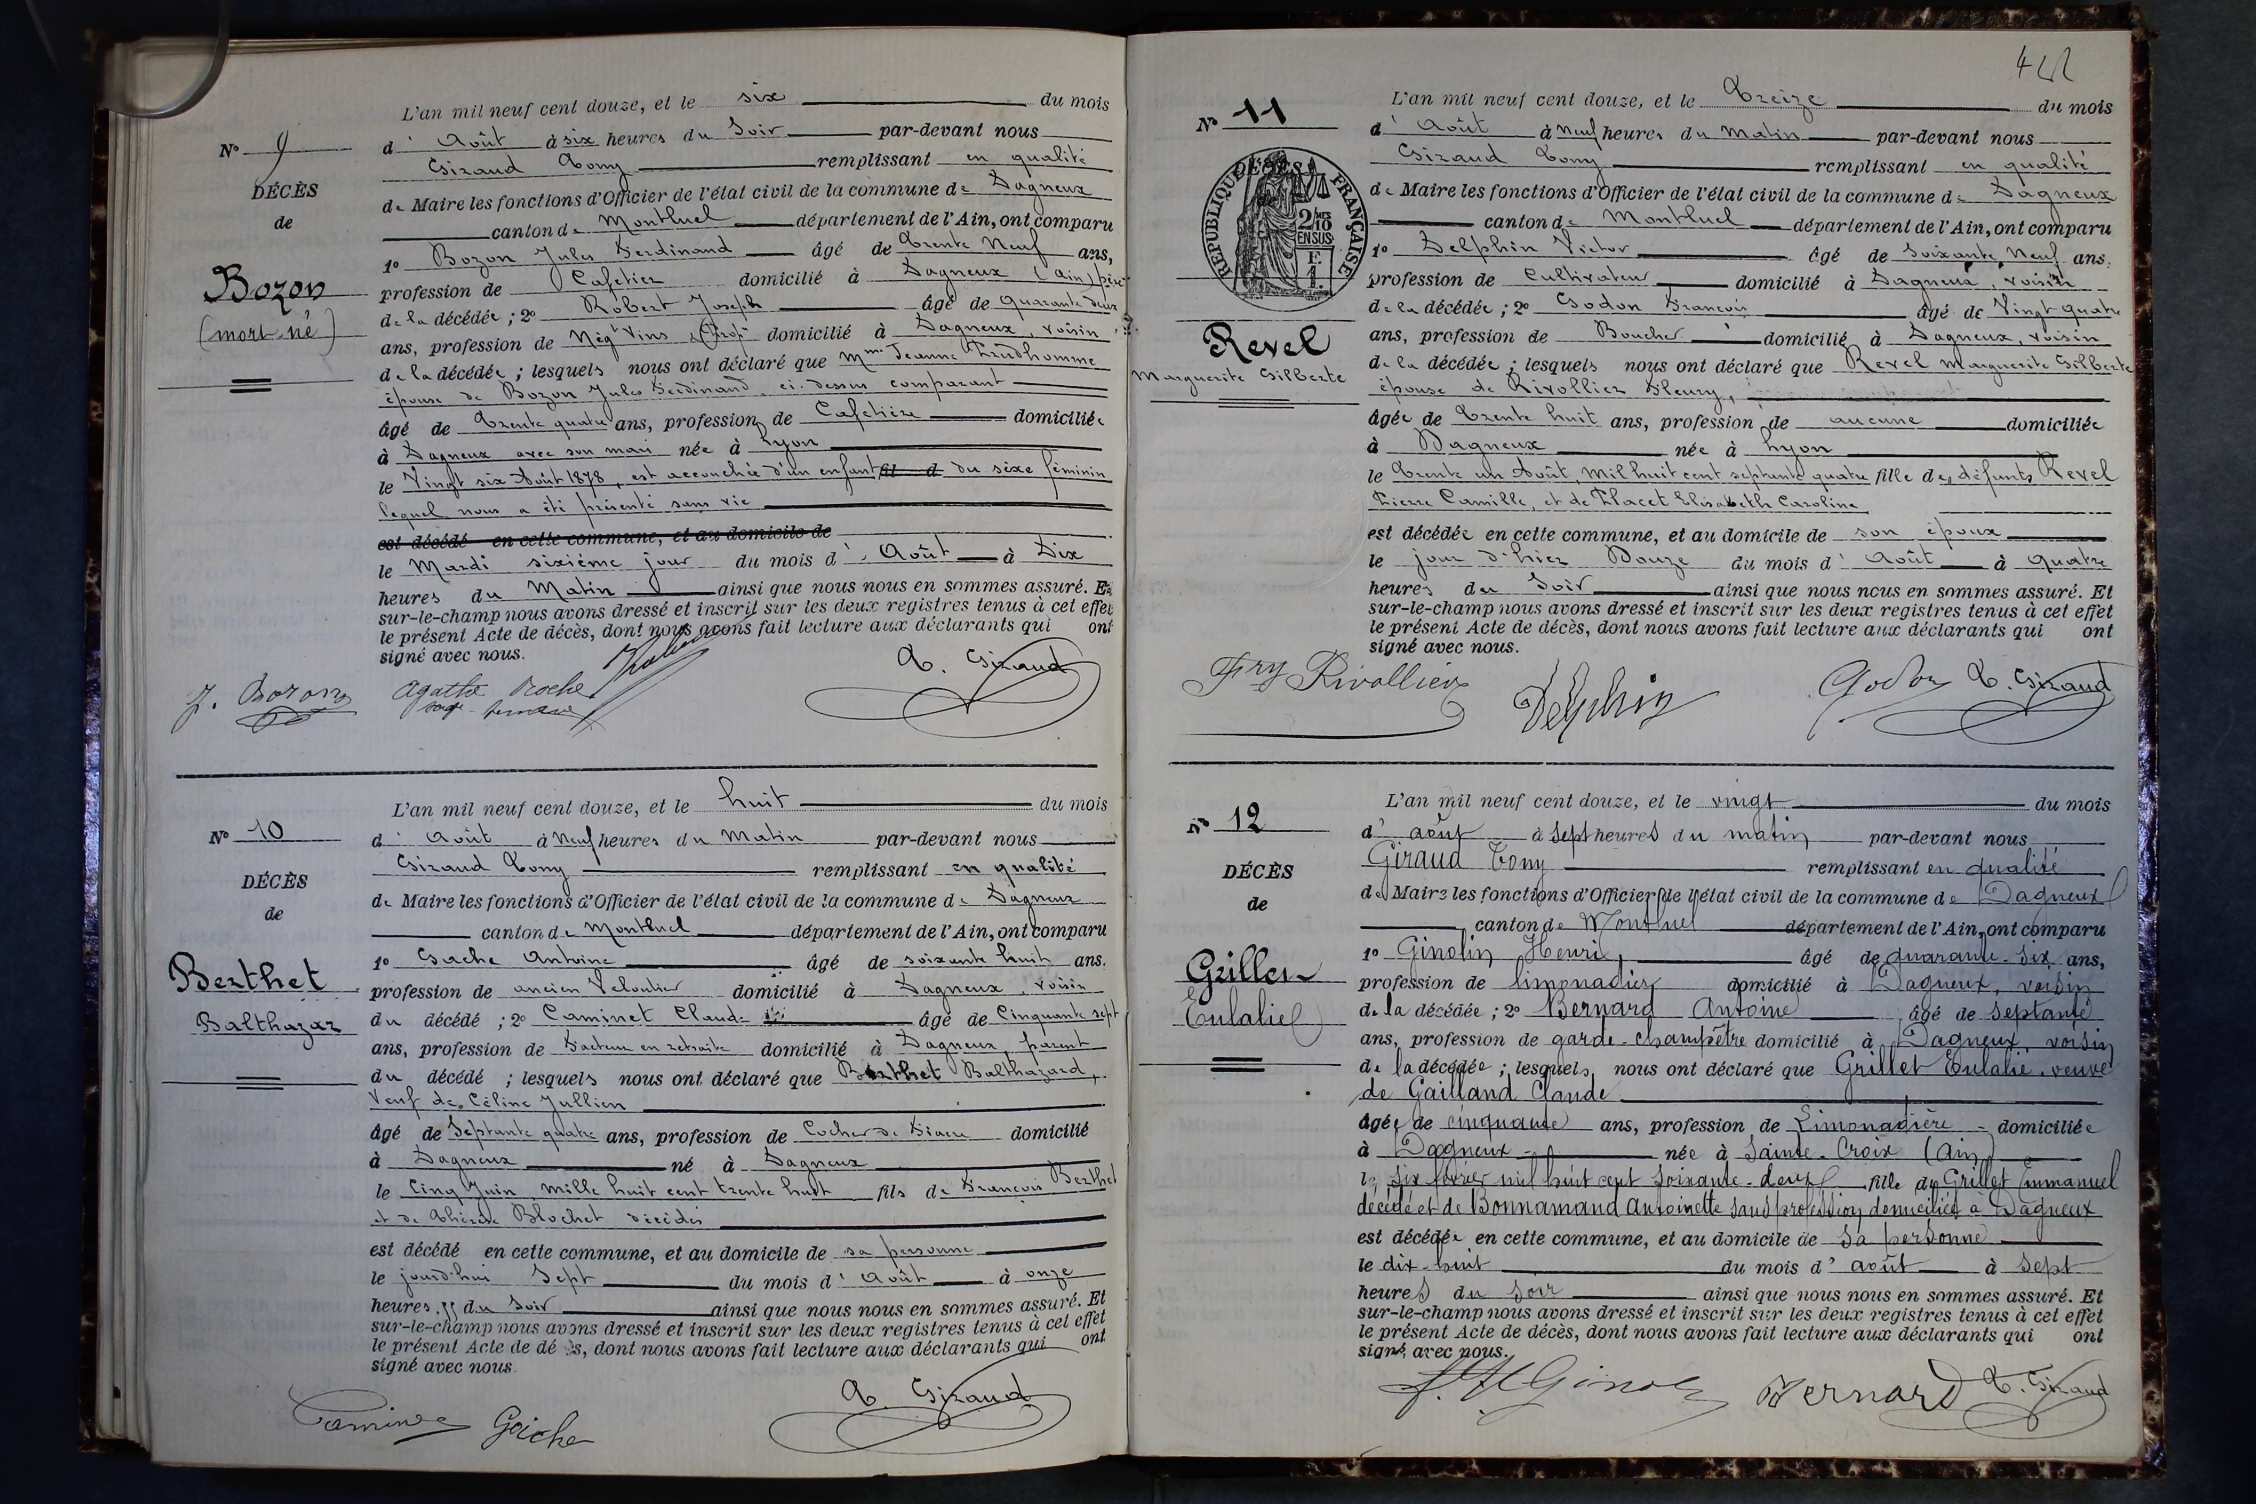 L'an mil neuf cent douze, et le six du mois
No 9
d' Août à six heures du Soir par-devant nous
Giraud Tony remplissant en qualité
DÉCÈS
de Maire les fonctions d'Officier de l'état civil de la commune de Dagneux
de
canton de Montluel département de l'Ain, ont comparu
1o Bozon Jules Ferdinand âgé de Trente Neuf ans,
Bozon
profession de Cafetier domicilié à Dagneux (Ain) père
(mort-né)
de la décédée ; 2o Robert Joseph âgé de Quarante deux
ans, profession de Nég t Vins & Prop. domicilié à Dagneux, voisin
de la décédée ; lesquels nous ont déclaré que Mme Jeanne Prudhomme
épouse de Bozon Jules Ferdinand, ci-dessus comparant
âgé de Trente quatre ans, profession de Cafetière domiciliée
à Dagneux avec son mari née à Lyon
le Vingt six Août 1878, est accouchée d'un enfant du sèxe féminin
lequel nous a été présenté sans vie
est décédé en cette commune, et au domicile de
le Mardi sixième jour du mois d' Août à Dix
heures du Matin ainsi que nous nous en sommes assuré. Et
sur-le-champ nous avons dressé et inscrit sur les deux registres tenus à cet effet
le présent Acte de décès, dont nous avons fait lecture aux déclarants qui ont
signé avec nous.
J. Bozon Agathe Roche T. Giraud
sage-femme
L'an mil neuf cent douze, et le huit du mois
No 10
d' Août à Neuf heures du Matin par-devant nous
Giraud Tony remplissant en qualité
DÉCÈS
de Maire les fonctions d'Officier de l'état civil de la commune de Dagneux
de
canton de Montluel département de l'Ain, ont comparu
1o Gache Antoine âgé de soixante huit ans.
Berthet
profession de ancien Veloutier domicilié à Dagneux, voisin
Balthazar
du décédé ; 2o Caminet Claude âgé de Cinquante sept
ans, profession de Facteur en retraite domicilié à Dagneux, parent
du décédé ; lesquels nous ont déclaré que Berthet Balthazard,
Veuf de Céline Jullien
âgé de Septante quatre ans, profession de Cocher de Fiacre domicilié
à Dagneux né à Dagneux
le Cinq Juin, mille huit cent trente huit fils de François Berthet
et de Thérèse Blochet décédés
est décédé en cette commune, et au domicile de sa personne
le jourd'hui Sept du mois d' Août à onze
heures du Soir ainsi que nous nous en sommes assuré. Et
sur-le-champ nous avons dressé et inscrit sur les deux registres tenus à cet effet
le présent Acte de décès, dont nous avons fait lecture aux déclarants qui ont
signé avec nous.
Caminet Gache T. Giraud
L'an mil neuf cent douze, et le Treize du mois
No 11
d' Août à Neuf heures du Matin par-devant nous
Giraud Tony remplissant en qualité
RÉPUBLIQUE FRANÇAISE
DÉCÈS
2/10 EN SUS
F. 1.
de Maire les fonctions d'Officier de l'état civil de la commune de Dagneux
canton de Montluel département de l'Ain, ont comparu
1o Delphin Victor âgé de Soixante Neuf ans.
profession de Cultivateur domicilié à Dagneux, voisin
de la décédée ; 2o Godon François âgé de Vingt quatre
Revel
ans, profession de Boucher domicilié à Dagneux, voisin
Marguerite Gilberte
de la décédée ; lesquels nous ont déclaré que Revel Marguerite Gilberte
épouse de Rivollier Fleury,
âgée de Trente huit ans, profession de aucune domiciliée
à Dagneux née à Lyon
le Trente un Août, Mil huit cent septante quatre fille des défunts Revel
Pierre Camille, et de Placet Elisabeth Caroline
est décédée en cette commune, et au domicile de son époux
le jour d'hier Douze du mois d' Août à quatre
heures du Soir ainsi que nous nous en sommes assuré. Et
sur-le-champ nous avons dressé et inscrit sur les deux registres tenus à cet effet
le présent Acte de décès, dont nous avons fait lecture aux déclarants qui ont
signé avec nous.
Fry Rivollier Delphin Godon T. Giraud
L'an mil neuf cent douze, et le vingt du mois
No 12
d' août à sept heures du matin par-devant nous
Giraud Tony remplissant en qualité
DÉCÈS
de Maire les fonctions d'Officier de l'état civil de la commune de Dagneux
de
canton de Montluel département de l'Ain, ont comparu
1o Ginolin Henri, âgé de quarante-six ans,
Grillet
profession de limonadier domicilié à Dagneux, voisin
Eulalie
de la décédée ; 2o Bernard Antoine âgé de septante
ans, profession de garde-champêtre domicilié à Dagneux, voisin
de la décédée ; lesquels nous ont déclaré que Grillet Eulalie, veuve
de Gailland Claude
âgée de cinquante ans, profession de Limonadière domiciliée
à Dagneux née à Sainte-Croix (Ain)
le six février mil huit cent soixante-deux fille de Grillet Emmanuel
décédé et de Bonnamand Antoinette sans profession domiciliée à Dagneux
est décédée en cette commune, et au domicile de sa personne
le dix-huit du mois d' août à sept
heures du soir ainsi que nous nous en sommes assuré. Et
sur-le-champ nous avons dressé et inscrit sur les deux registres tenus à cet effet
le présent Acte de décès, dont nous avons fait lecture aux déclarants qui ont
signé avec nous.
Bernard T. Giraud